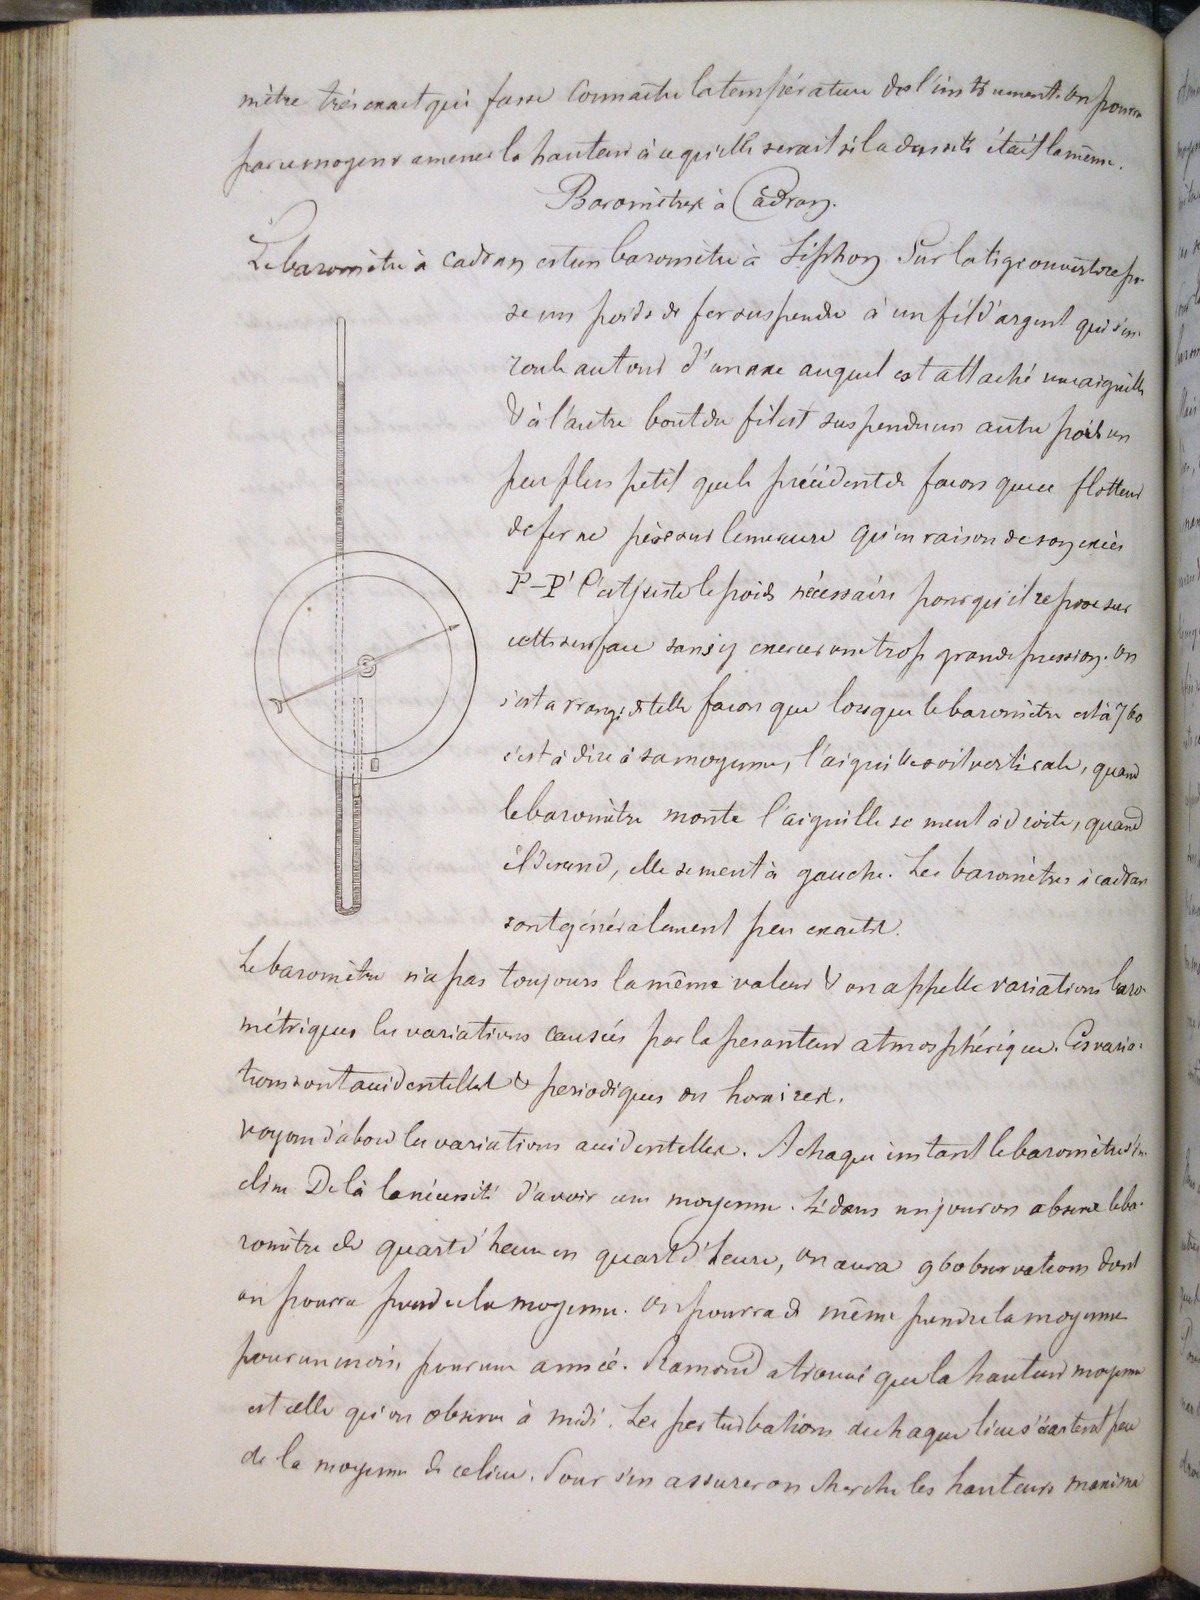 mètre très exact qui fasse connaître la température de l'instrument. On pourra
par ce moyen ramener la hauteur à ce qu'elle serait si la densité était la même.
Baromètre à Cadran.
Le baromètre à cadran est un baromètre à Siphon. Sur la tige ouverte repo-
se un poids de fer suspendu à un fil d'argent qui s'en-
roule autour d'un axe auquel est attaché une aiguille
& à l'autre bout du fil est suspendu un autre poids un
peu plus petit que le précédent de façon que ce flotteur
de fer ne pèse sur le mercure qu'en raison de son excès
P-P' C'est juste le poids nécessaire pour qu'il repose sur
cette surface sans y exercer une trop grande pression. On
s'est arrangé de telle façon que lorsque le baromètre est à 760
c'est à dire à sa moyenne, l'aiguille soit verticale, quand
le baromètre monte l'aiguille se meut à droite, quand
il descend, elle se meut à gauche. Les baromètres à cadran
sont généralement peu exacts.
Le baromètre n'a pas toujours la même valeur & on appelle variations baro-
métriques les variations causées par la pesanteur atmosphérique. Ces varia-
tions sont accidentelles & periodiques ou horaires.
voyons d'abord les variations accidentelles. A chaque instant le baromètre s'in-
cline De là la nécessité d'avoir une moyenne. Si dans un jour on observe le ba-
romètre de quart d'heure en quart d'heure, on aura 96 observations dont
on pourra prendre la moyenne. On pourra de même prendre la moyenne
pour un mois, pour une année. Ramond a trouvé que la hauteur moyenne
est celle qu'on observe à midi. Les perturbations de chaque lieu s'écartent peu
de la moyenne de ce lieu. Pour s'en assurer on cherche les hauteurs maxima